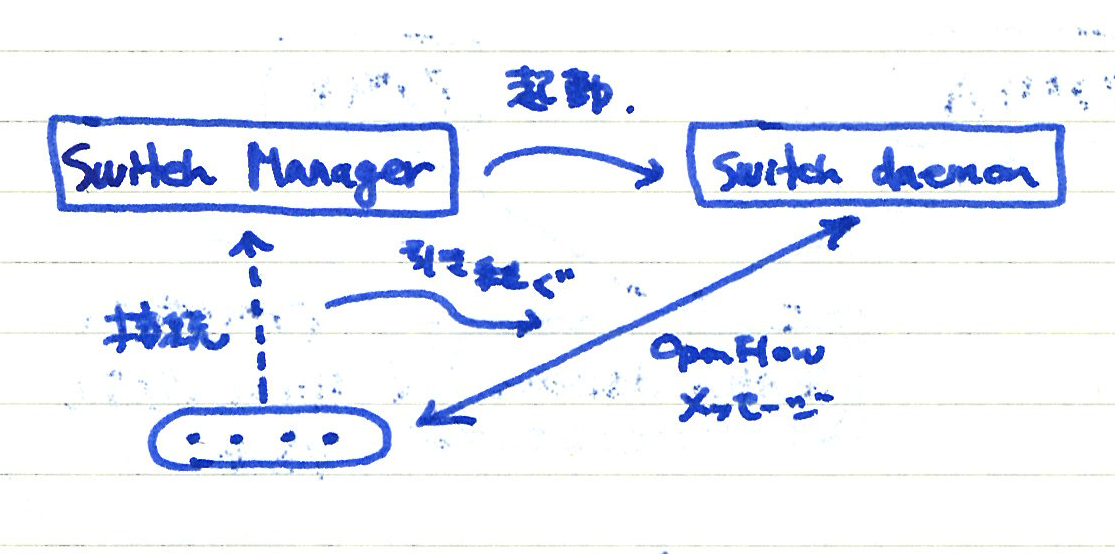 起動.
Switch Manager
switch daemon
引き継ぐ
接続
OpenFlow
メッセージ